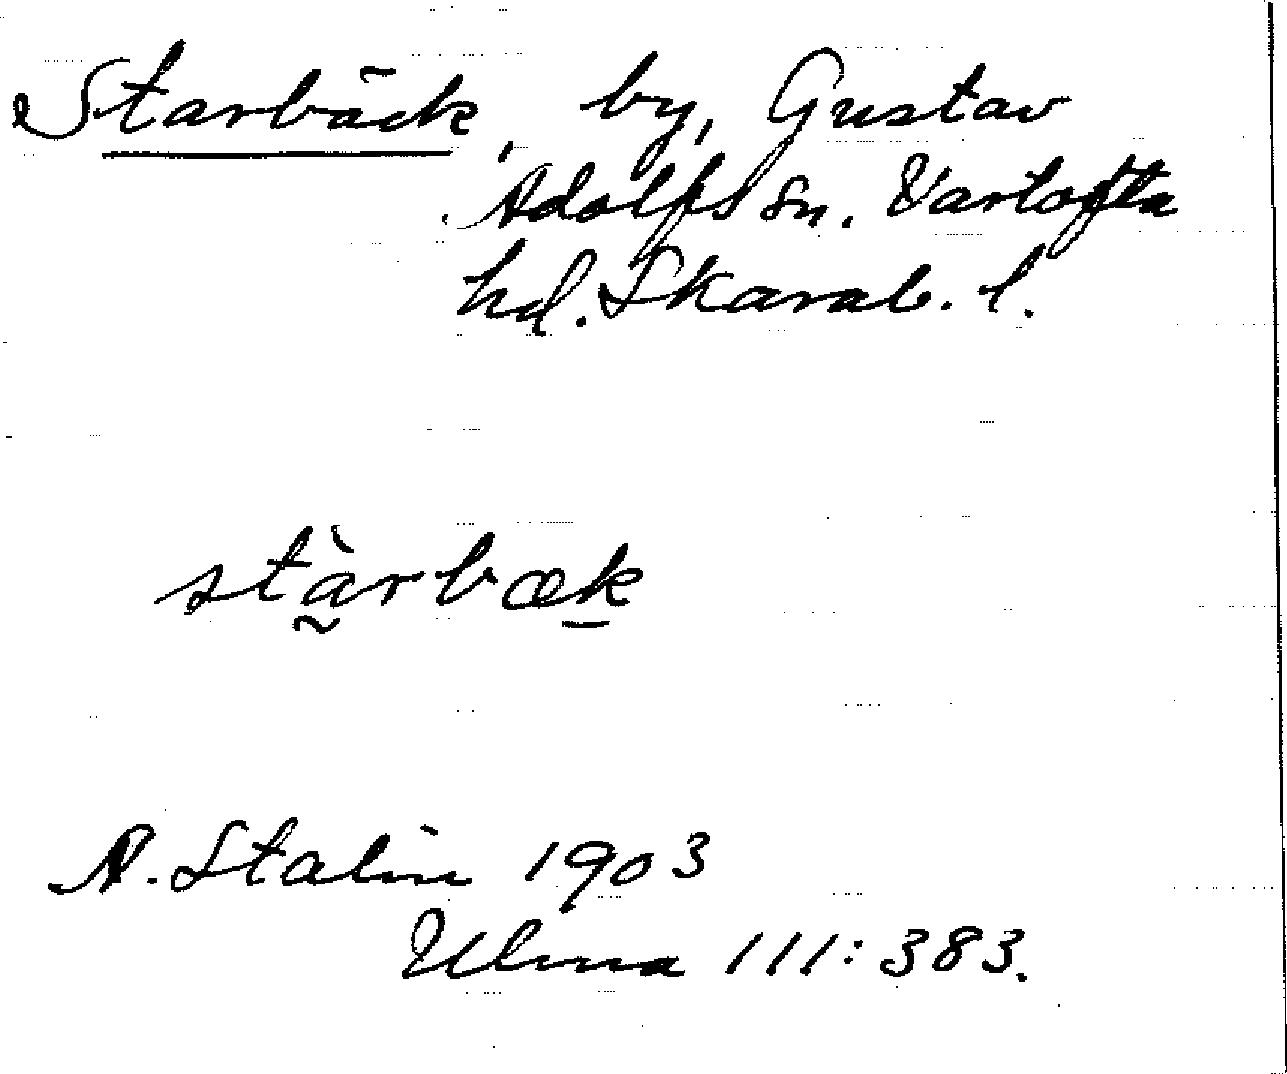 Starbäck, by, Gustav
Adolfs sn. Vartofta
hd. Skarab. l.
stàrbæk
A. Stalin 1903
Ulma 111:383.